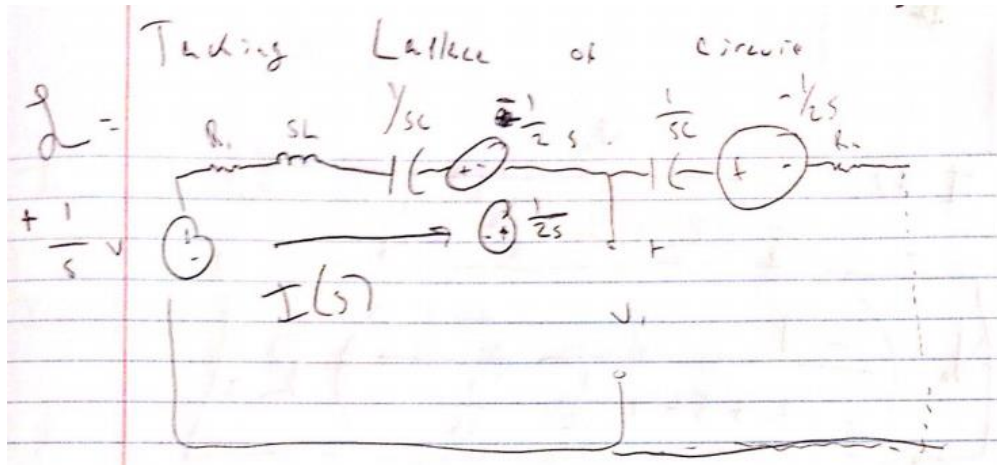 Taking Laplace of circuit
L =
R₁ SL 1/SC -1/2 S 1/SC -1/2S R₂
+ 1/S V + - + - + -
- + 1/2S +
I(S)
V₁